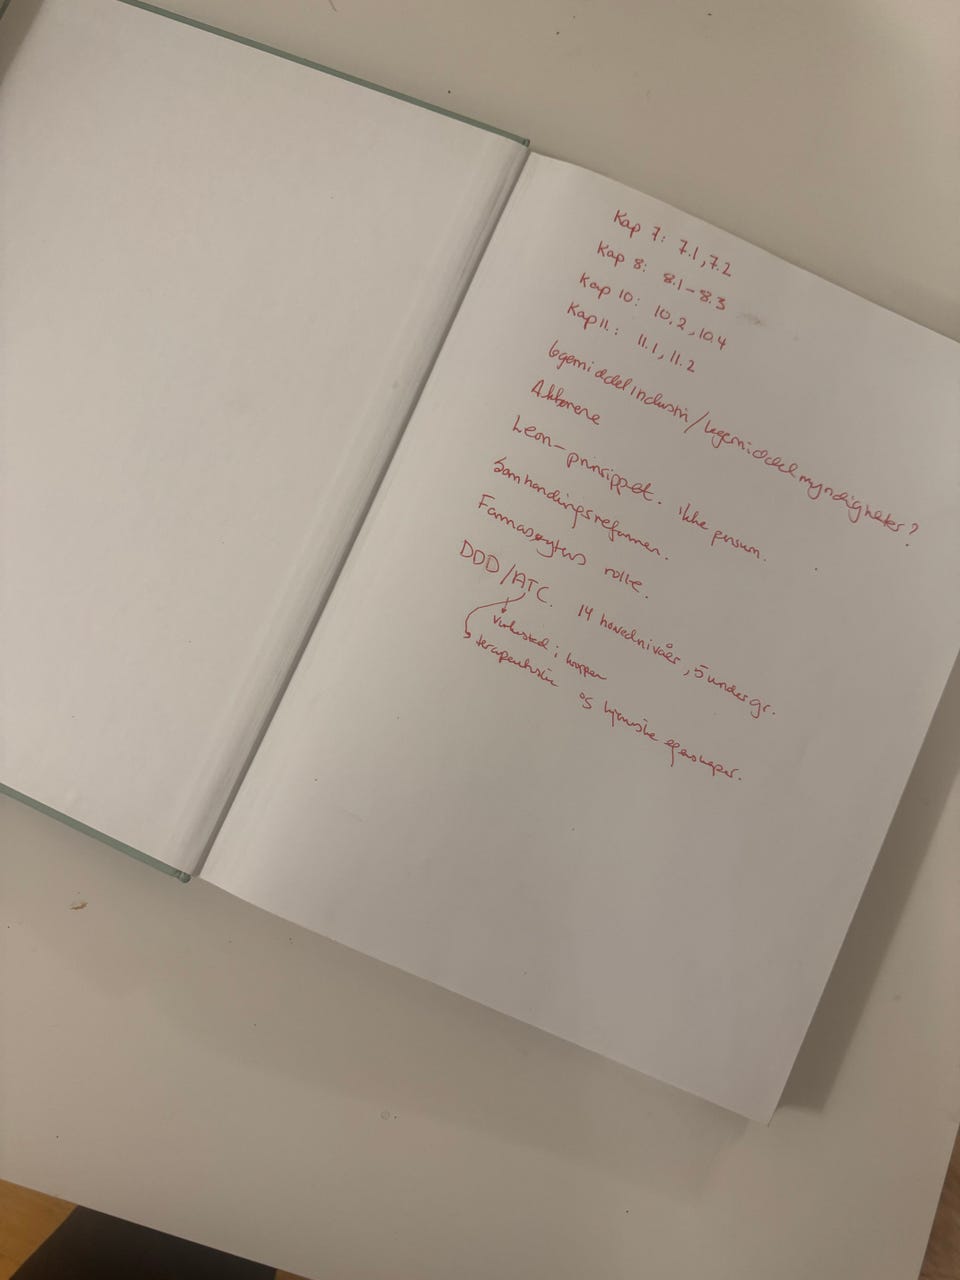 Kap 7: 7.1, 7.2
Kap 8: 8.1-8.3
Kap 10: 10.2, 10.4
Kap 11.: 11.1, 11.2
legemiddelindustri/legemiddelmyndigheter?
Aktørene
Leon-prinsippet. ikke pensum.
Samhandlingsreformen.
Farmasøytens rolle.
DDD/ATC. 14 hovednivåer, 5 undergr.
virkested i kroppen
terapeutiske og kjemiske egenskaper.